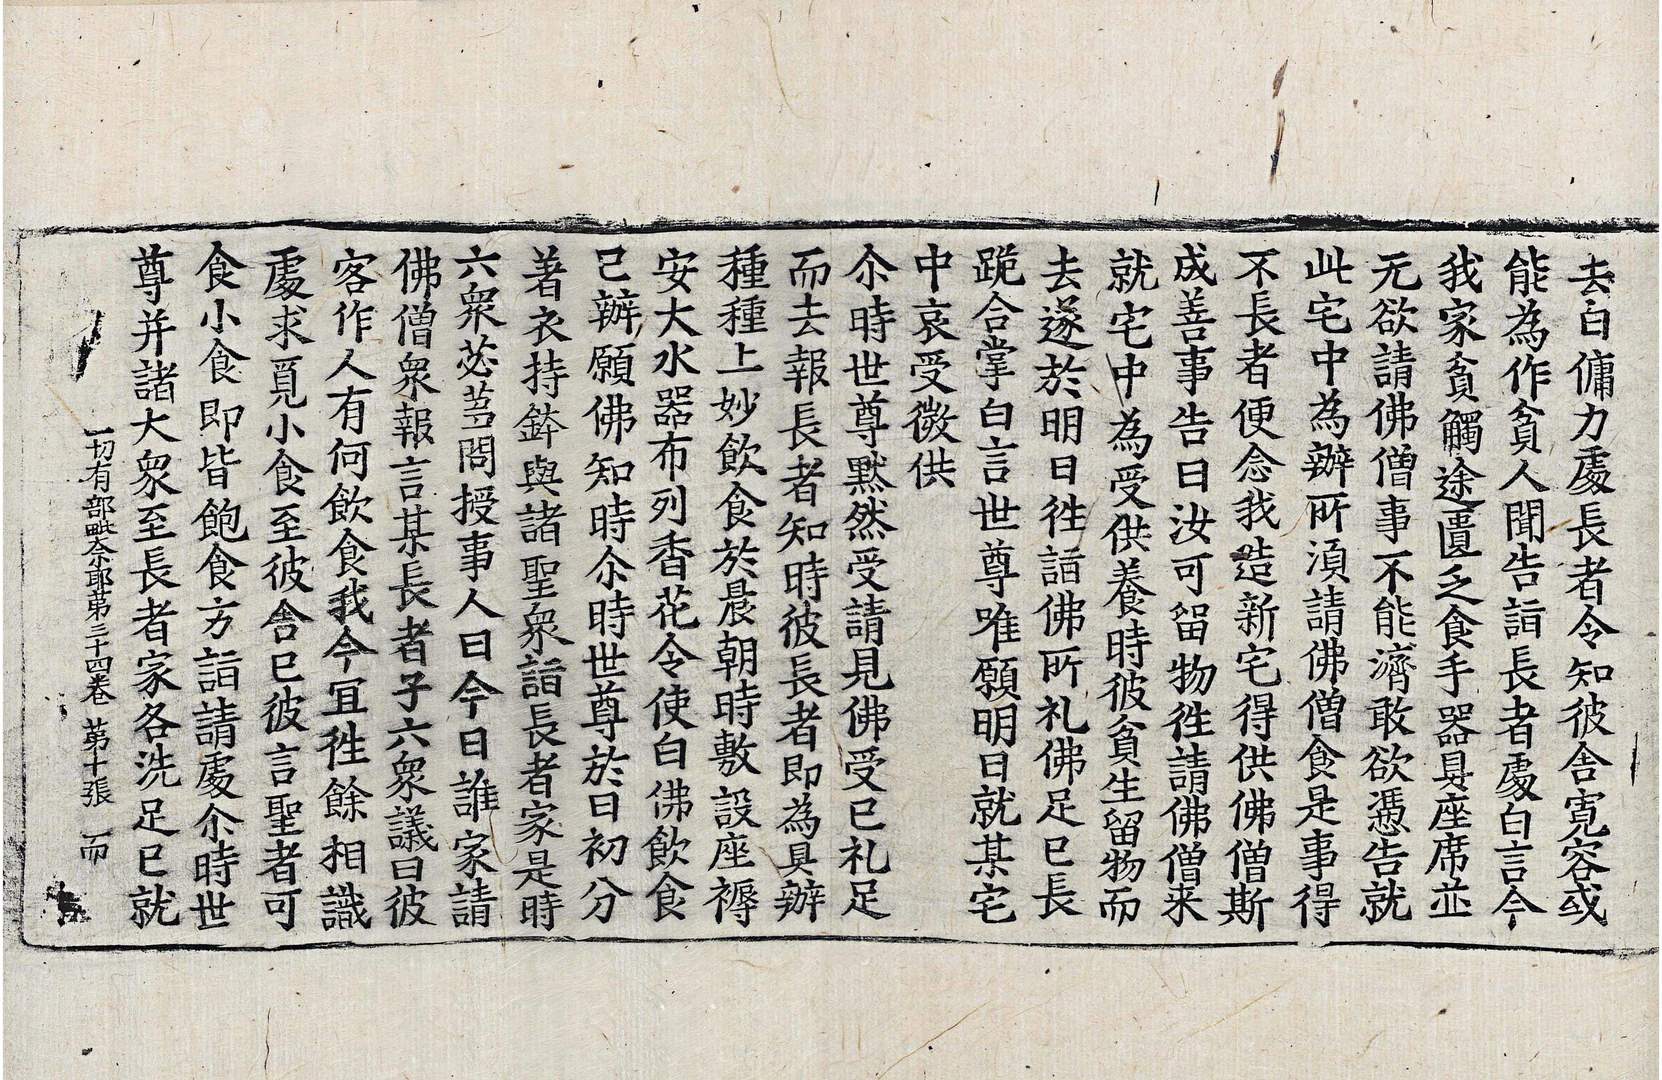 去白傭力處長者令知彼舍寬容或
能為作貧人聞告詣長者處白言今
我家貧觸途匱乏食手器具座席並
无欲請佛僧事不能濟敢欲憑告就
此宅中為辦所湏請佛僧食是事得
不長者便念我造新宅得供佛僧斯
成善事告曰汝可留物徃請佛僧来
就宅中為受供養時彼貧生留物而
去遂於明日徃詣佛所礼佛足已長
跪合掌白言世尊唯願明日就某宅
中哀受微供
尒時世尊黙然受請見佛受已礼足
而去報長者知時彼長者即為具辦
種種上妙飲食於晨朝時敷設座褥
安大水器布列香花令使白佛飲食
已辦願佛知時尒時世尊於日初分
著衣持鉢與諸聖衆詣長者家是時
六衆苾芻問授事人曰今日誰家請
佛僧衆報言某長者子六衆議曰彼
客作人有何飲食我今冝徃餘相識
處求覓小食至彼舍已彼言聖者可
食小食即皆飽食方詣請處尒時世
尊并諸大衆至長者家各洗足已就
一切有部毗奈耶第三十四卷 第十張 而